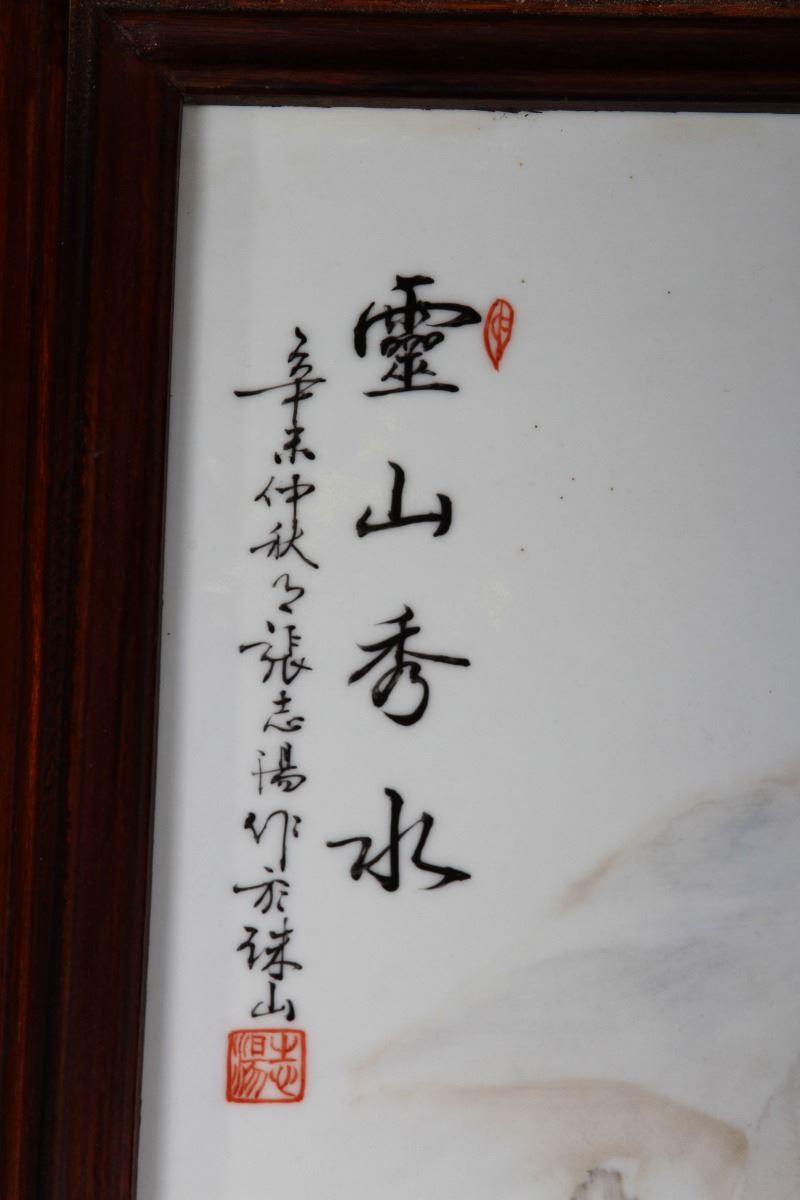 靈山秀水
辛未仲秋月張志湯作於珠山
志湯